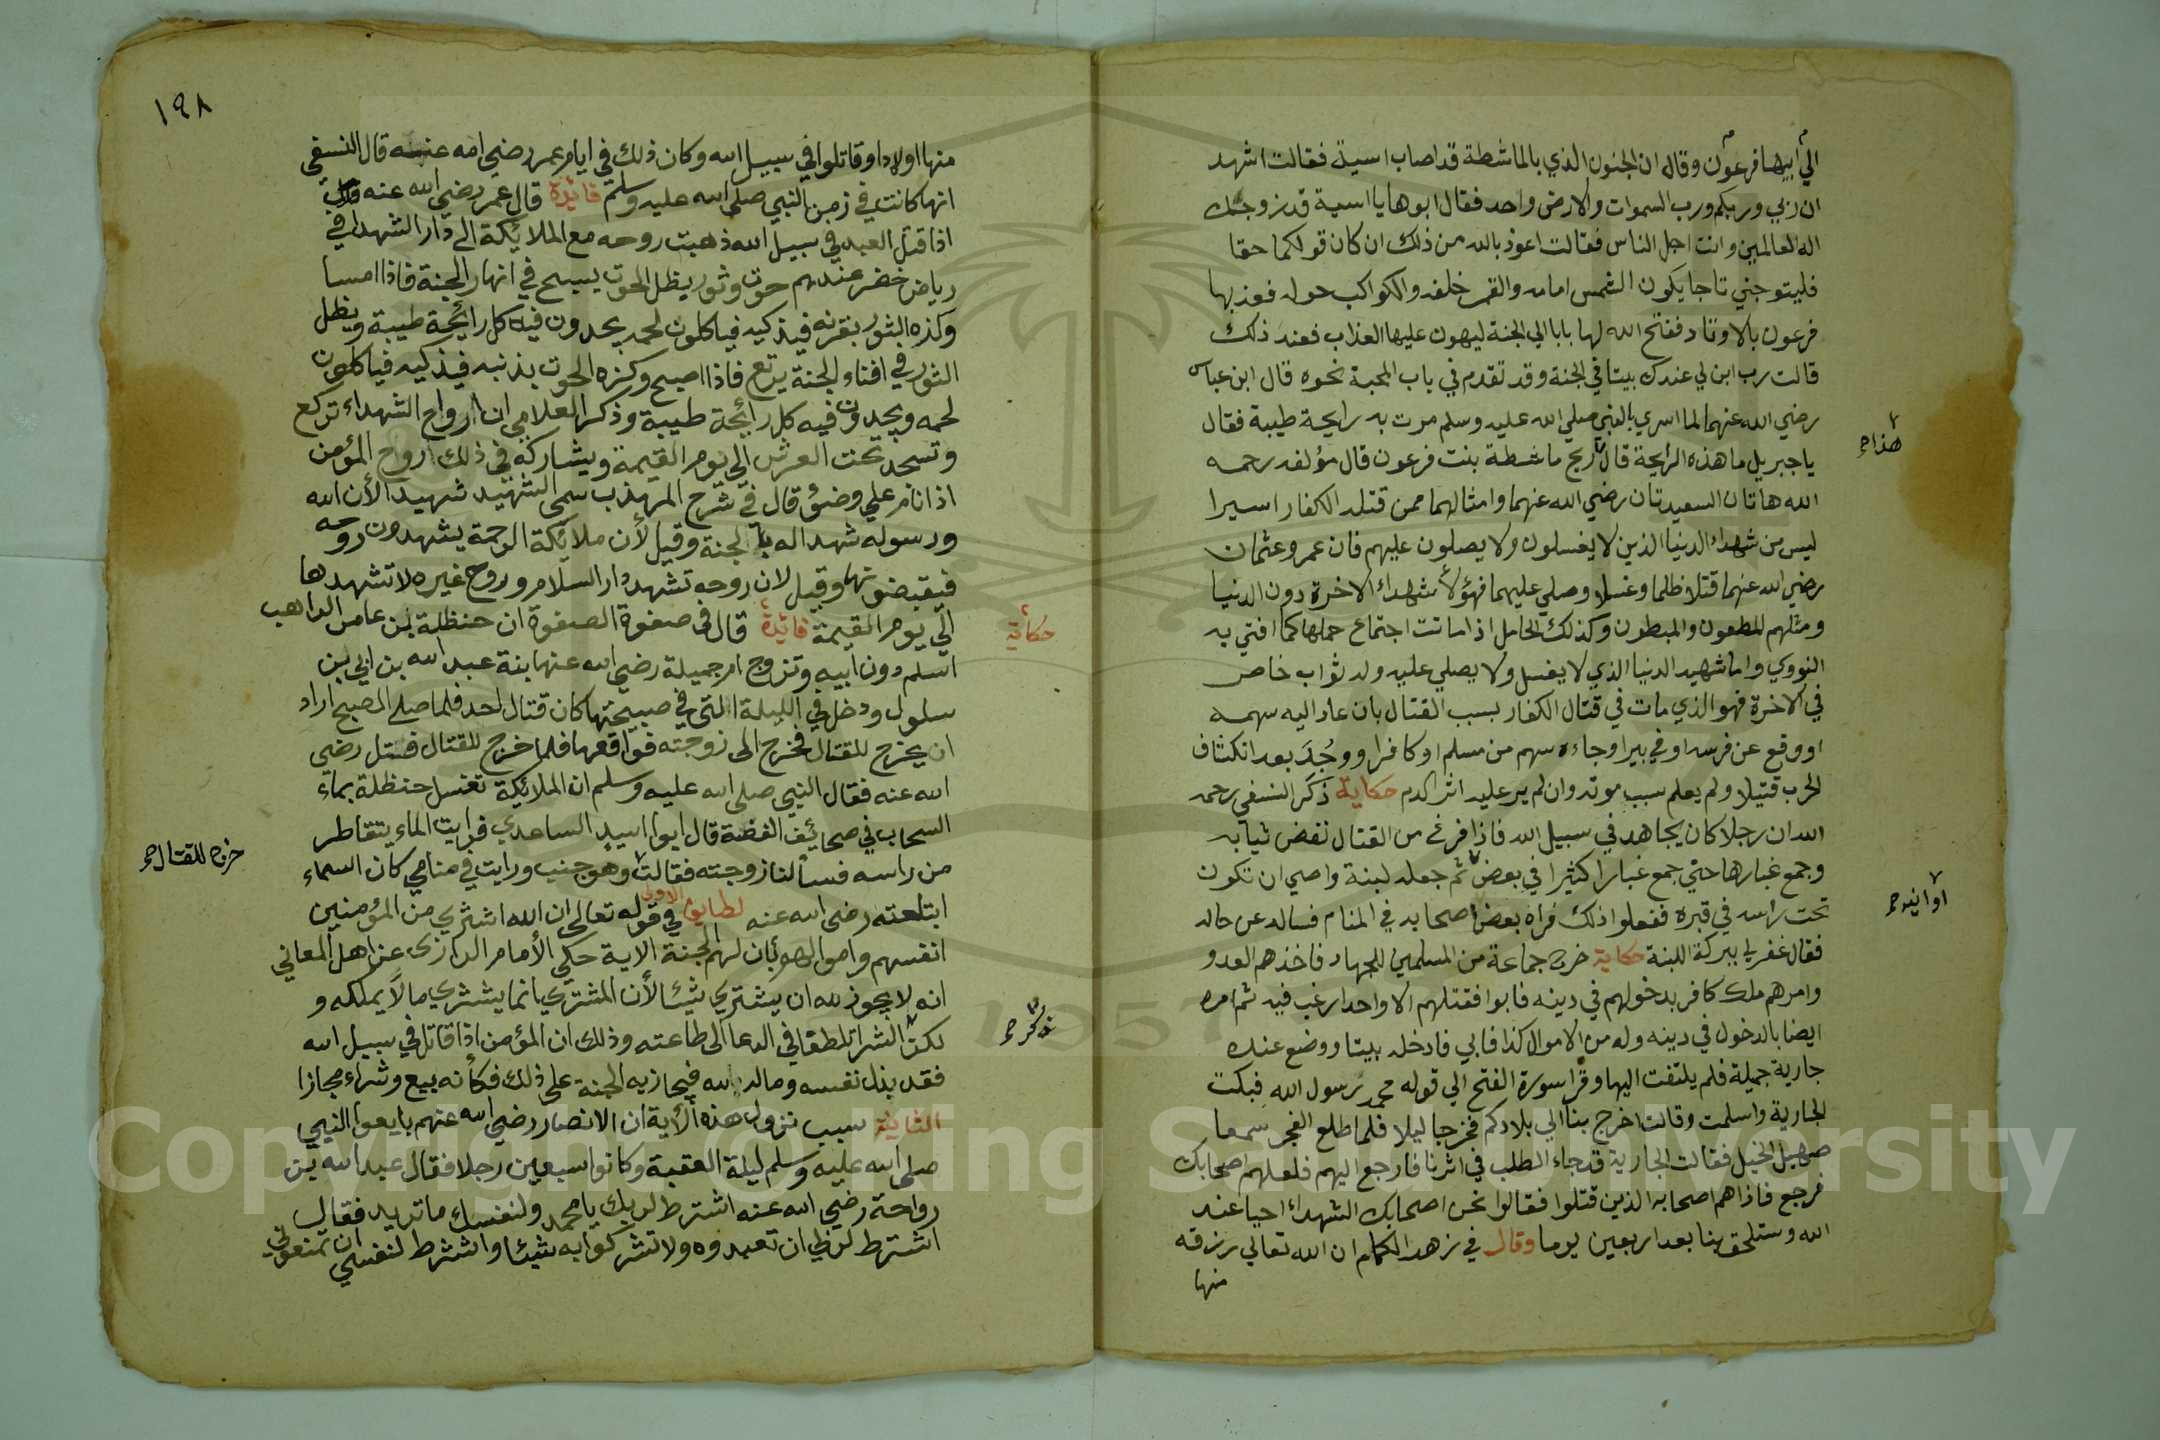 الي ابيها فرعون وقاله ان الجنون الذي بالماشطة قد اصاب اسية فقالت اشهد
ان ربي وربكم ورب السموات والارض واحد فقال ابوها يا اسية قد زوجتك
اله العالمين وانت اجل الناس فقالت اعوذ بالله من ذلك ان كان قولكما حقا
فليتوجني تاجا يكون الشمس امامه والقمر خلفه والكواكب حوله فعذبها
فرعون بالاوتاد ففتح الله لها بابا الي الجنة ليهون عليها العذاب فعند ذلك
قالت رب ابن لي عندك بيتا في الجنة وقد تقدم في باب المحبة نحوه قال ابن عباس
رضي الله عنهما لما اسري بالنبي صلي الله عليه وسلم مرت به رايحة طيبة فقال
ياجبريل ما هذه الرايحة قال ريح ماشطة بنت فرعون قال مؤلفه رحمه
هذا
الله هاتان السعيدتان رضي الله عنهما وامثالهما ممن قتله الكفار اسيرا
ليس من شهداء الدنيا الذين لا يغسلون ولا يصلون عليهم فان عمر وعثمان
رضي الله عنهما قتلا ظلما وغسلا وصلي عليهما فهؤلاء شهداء الاخرة دون الدنيا
ومثلهم المطعون والمبطون وكذلك الحامل اذا ماتت اجتماع حملها كما افتي به
النووي واما شهيد الدنيا الذي لا يغسل ولا يصلي عليه وله ثواب خاص
في الاخرة فهو الذي مات في قتال الكفار بسبب القتال بان عاد اليه سهمه
او وقع عن فرسه او في بير او جاءه سهم من مسلم او كافر او وجد بعد انكشاف
الحرب قتيلا ولم يعلم سبب موته وان لم ير عليه اثر الدم حكاية ذكر النسفي رحمه
الله ان رجلا كان يجاهد في سبيل الله فاذا فرغ من القتال نفض ثيابه
وجمع غبارها حتي جمع غبارا كثيرا في بعض ثم جعله لبنة واصي ان تكون
اوانيه
تحت راسه في قبره ففعلوا ذلك فراه بعض اصحابه في المنام فساله عن حاله
فقال غفر لي ببركة اللبنة حكاية خرج جماعة من المسلمين للجهاد فاخذهم العدو
وامرهم ملك كافر بدخولهم في دينه فابوا فقتلهم الا واحدا رغب فيه ثم امره
ايضا بالدخول في دينه وله من الاموال كذا فابي فادخله بيتا ووضع عنده
جارية جميلة فلم يلتفت اليها وقرا سورة الفتح الي قوله محمد رسول الله فبكت
الجارية واسلمت وقالت اخرج بنا الي بلادكم فخرجا ليلا فلما طلع الفجر سمعا
صهيل الخيل فقالت الجارية قد جاء الطلب في اثرنا فارجع اليهم فلعلهم اصحابك
فرجع فاذا هم اصحابه الذين قتلوا فقالوا نحن اصحابك الشهداء احيا عند
الله وستلحق بنا بعد اربعين يوما وقال في زهد الكمام ان الله تعالي رزقه
منها
١٩٨
منها اولادا وقاتلوا في سبيل الله وكان ذلك في ايام عمر رضي الله عنه قال النسفي
انها كانت في زمن النبي صلي الله عليه وسلم فائدة قال عمر رضي الله عنه
اذا قتل العبد في سبيل الله ذهبت روحه مع الملائكة الي دار الشهدا في
رياض خضر عندهم حوت وثور يظل الحوت يسبح في انهار الجنة فاذا امسا
وكزه الثور بقرنه فيذكيه فياكلون لحمه يجدون فيه كل رائحة طيبة ويظل
الثور في افناء الجنة يرتع فاذا اصبح وكزه الحوت بذنبه فيذكيه فياكلون
لحمه ويجدون فيه كل رائحة طيبة وذكر العلامي ان ارواح الشهداء تركع
وتسجد تحت العرش الي يوم القيمة ويشاركه في ذلك ارواح المؤمن
اذا نام علي وضوء قال في شرح المهذب سمي الشهيد شهيدا لأن الله
ورسوله شهدا له بالجنة وقيل لأن ملائكة الرحمة يشهدون روحه
فيقبضونها وقيل لان روحه تشهد دار السلام وروح غيره لا تشهدها
الي يوم القيمة فائدة قال في صفوة الصفوة ان حنظلة بن عامر الراهب
حكاية
اسلم دون ابيه وتزوج ام جميلة رضي الله عنها بنة عبد الله بن ابي بن
سلول ودخل في الليلة التي في صبيحتها كان قتال احد فلما صلي الصبح اراد
ان يخرج للقتال فخرج الي زوجته فواقعها فلما خرج للقتال فقتل رضي
الله عنه فقال النبي صلي الله عليه وسلم ان الملائكة تغسل حنظلة بماء
السحاب في صحائف الفضة قال ابوا اسيد الساعدي فرايت الماء يتقاطر
من راسه فسألنا زوجته فقالت وهو جنب ورايت في منامي كان السماء
خرج للقتال
ابتلعته رضي الله عنه لطايف الاولي في قوله تعالي ان الله اشتري من المؤمنين
انفسهم واموالهم بأن لهم الجنة الاية حكي الأمام الرازي عن اهل المعاني
انه لا يجوز لله ان يشتري شيئا لأن المشتري انما يشتري مالا يملكه و
لكن الشرا تلطفا في الدعا الي طاعته وذلك ان المؤمن اذا قاتل في سبيل الله
فقد بذل نفسه وماله لله فيجازيه الجنة علي ذلك فكأنه بيع وشراء مجازا
الثانية سبب نزول هذه الأية ان الانصار رضي الله عنهم بايعوا النبي
صلي الله عليه وسلم ليلة العقبة وكانوا سبعين رجلا فقال عبد الله بن
رواحة رضي الله عنه اشترط لربك يا محمد ولنفسك ما تريد فقال
اشترط لربي ان تعبدوه ولا تشركوا به شيئا واشترط لنفسي ان تمنعوني
Copyright © King Saud University
1957